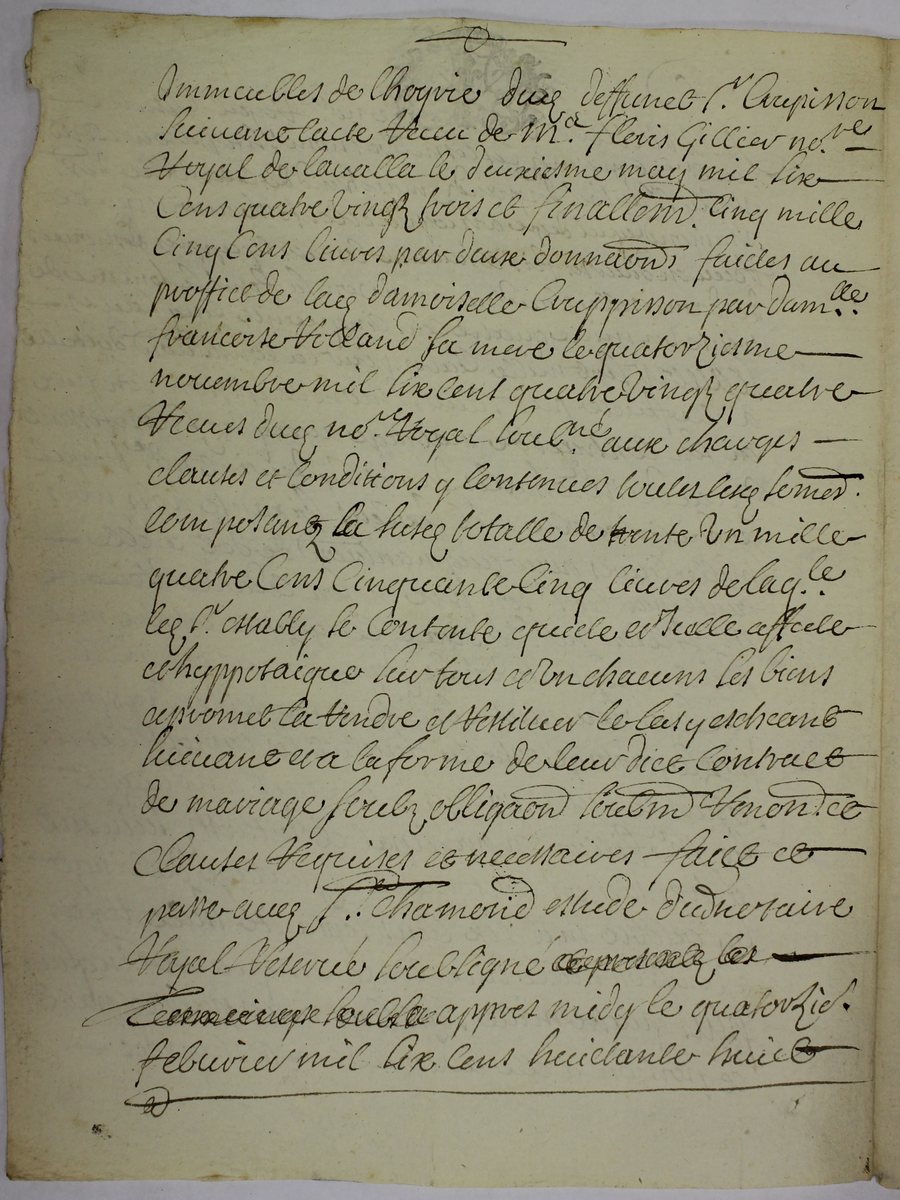 Immeubles de lhoyrie dud deffunct Sr. Crupisson
Suivant lacte Receu de Me. fleuris Gillier nore
Royal de lavalla le deuxiesme may mil six
Cens quatre vingtz trois et finallemt. cinq mille
Cinq Cens livres par deux donnaons faictes au
proffict de lad damoiselle Cruppisson par damlle.
francoise Rolland sa mere le quatorziesme
novembre mil six cent quatre vingtz quatre
Receues dud nore. Royal soubné. aux charges
clauses et Conditions y Contenues toutes lesq
composantz la susd totalle de trente un mille
quatre Cens Cinquante Cinq livres de laqle.
led Sr. estably se Contente quicte et Icelle affecte
et hyppotaique sur tous et un chacuns ses biens
a promet la Rendre et Restituer le cas y escheant
suivant et a la forme de leur dict Contract
de mariage soubz obligaon soubmn Renon. et
Clauses Requises et necessaires faict et
passe aud St. Chamond estude dud notaire
Royal Reservé soubsigné
appres midy le quatorzie.
febvrier mil six cens huictante huict